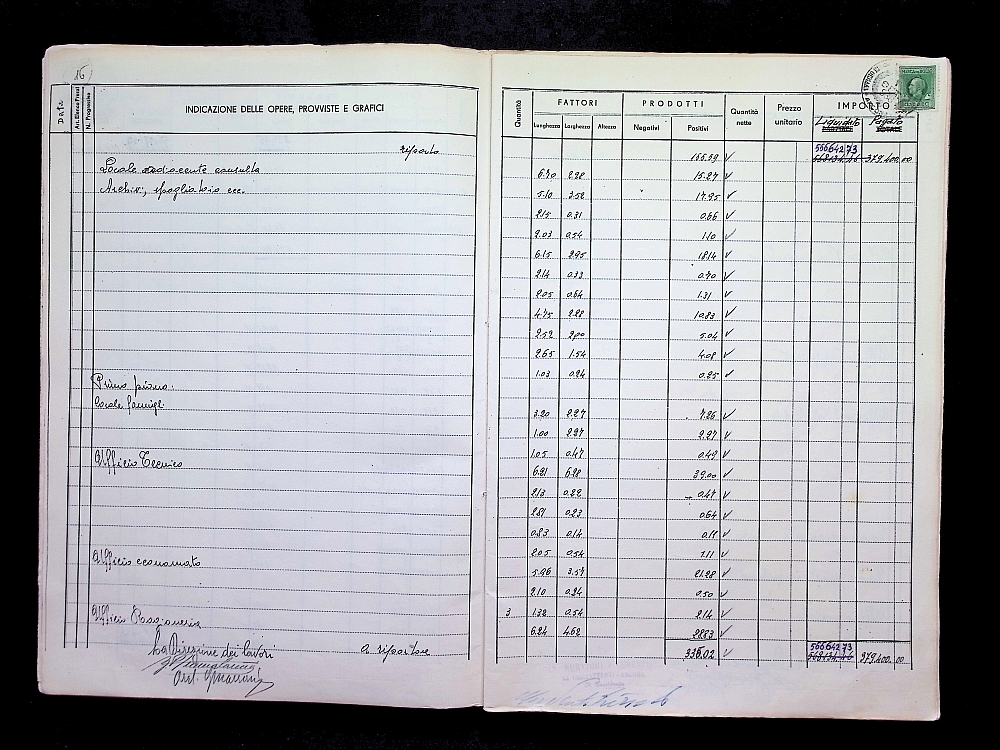 16
Data
Art. Elenco Prezzi
N. Progressivo
INDICAZIONE DELLE OPERE, PROVVISTE E GRAFICI
riporto
Locale adiacente consulta
Archivi, spogliatoio ecc.
Primo piano.
Locale famigl.
Ufficio Tecnico
Ufficio economato
Ufficio Ragioneria
La Direzione dei lavori
a riportare
Quantità
FATTORI
PRODOTTI
Quantità nette
Prezzo unitario
IMPORTO
Lunghezza Larghezza Altezza
Negativi Positivi
Liquidato Pagato
155.59 56664273 379.400.00
6.70 2.28 15.27
5.10 3.52 17.95
2.15 0.31 0.66
2.03 0.54 1.10
6.15 2.95 18.14
2.14 0.33 0.70
2.05 0.64 1.31
4.75 2.28 10.83
2.52 2.00 5.04
2.65 1.54 4.08
1.03 0.24 0.25
3.20 2.27 7.26
1.00 2.27 2.27
1.05 0.47 0.49
6.21 6.28 39.00
2.13 0.22 0.47
2.81 0.23 0.64
0.83 0.14 0.11
2.05 0.54 1.11
5.96 3.57 21.28
2.10 0.24 0.50
3 1.32 0.54 2.14
6.24 4.62 28.83
336.02 56664273 379.400.00